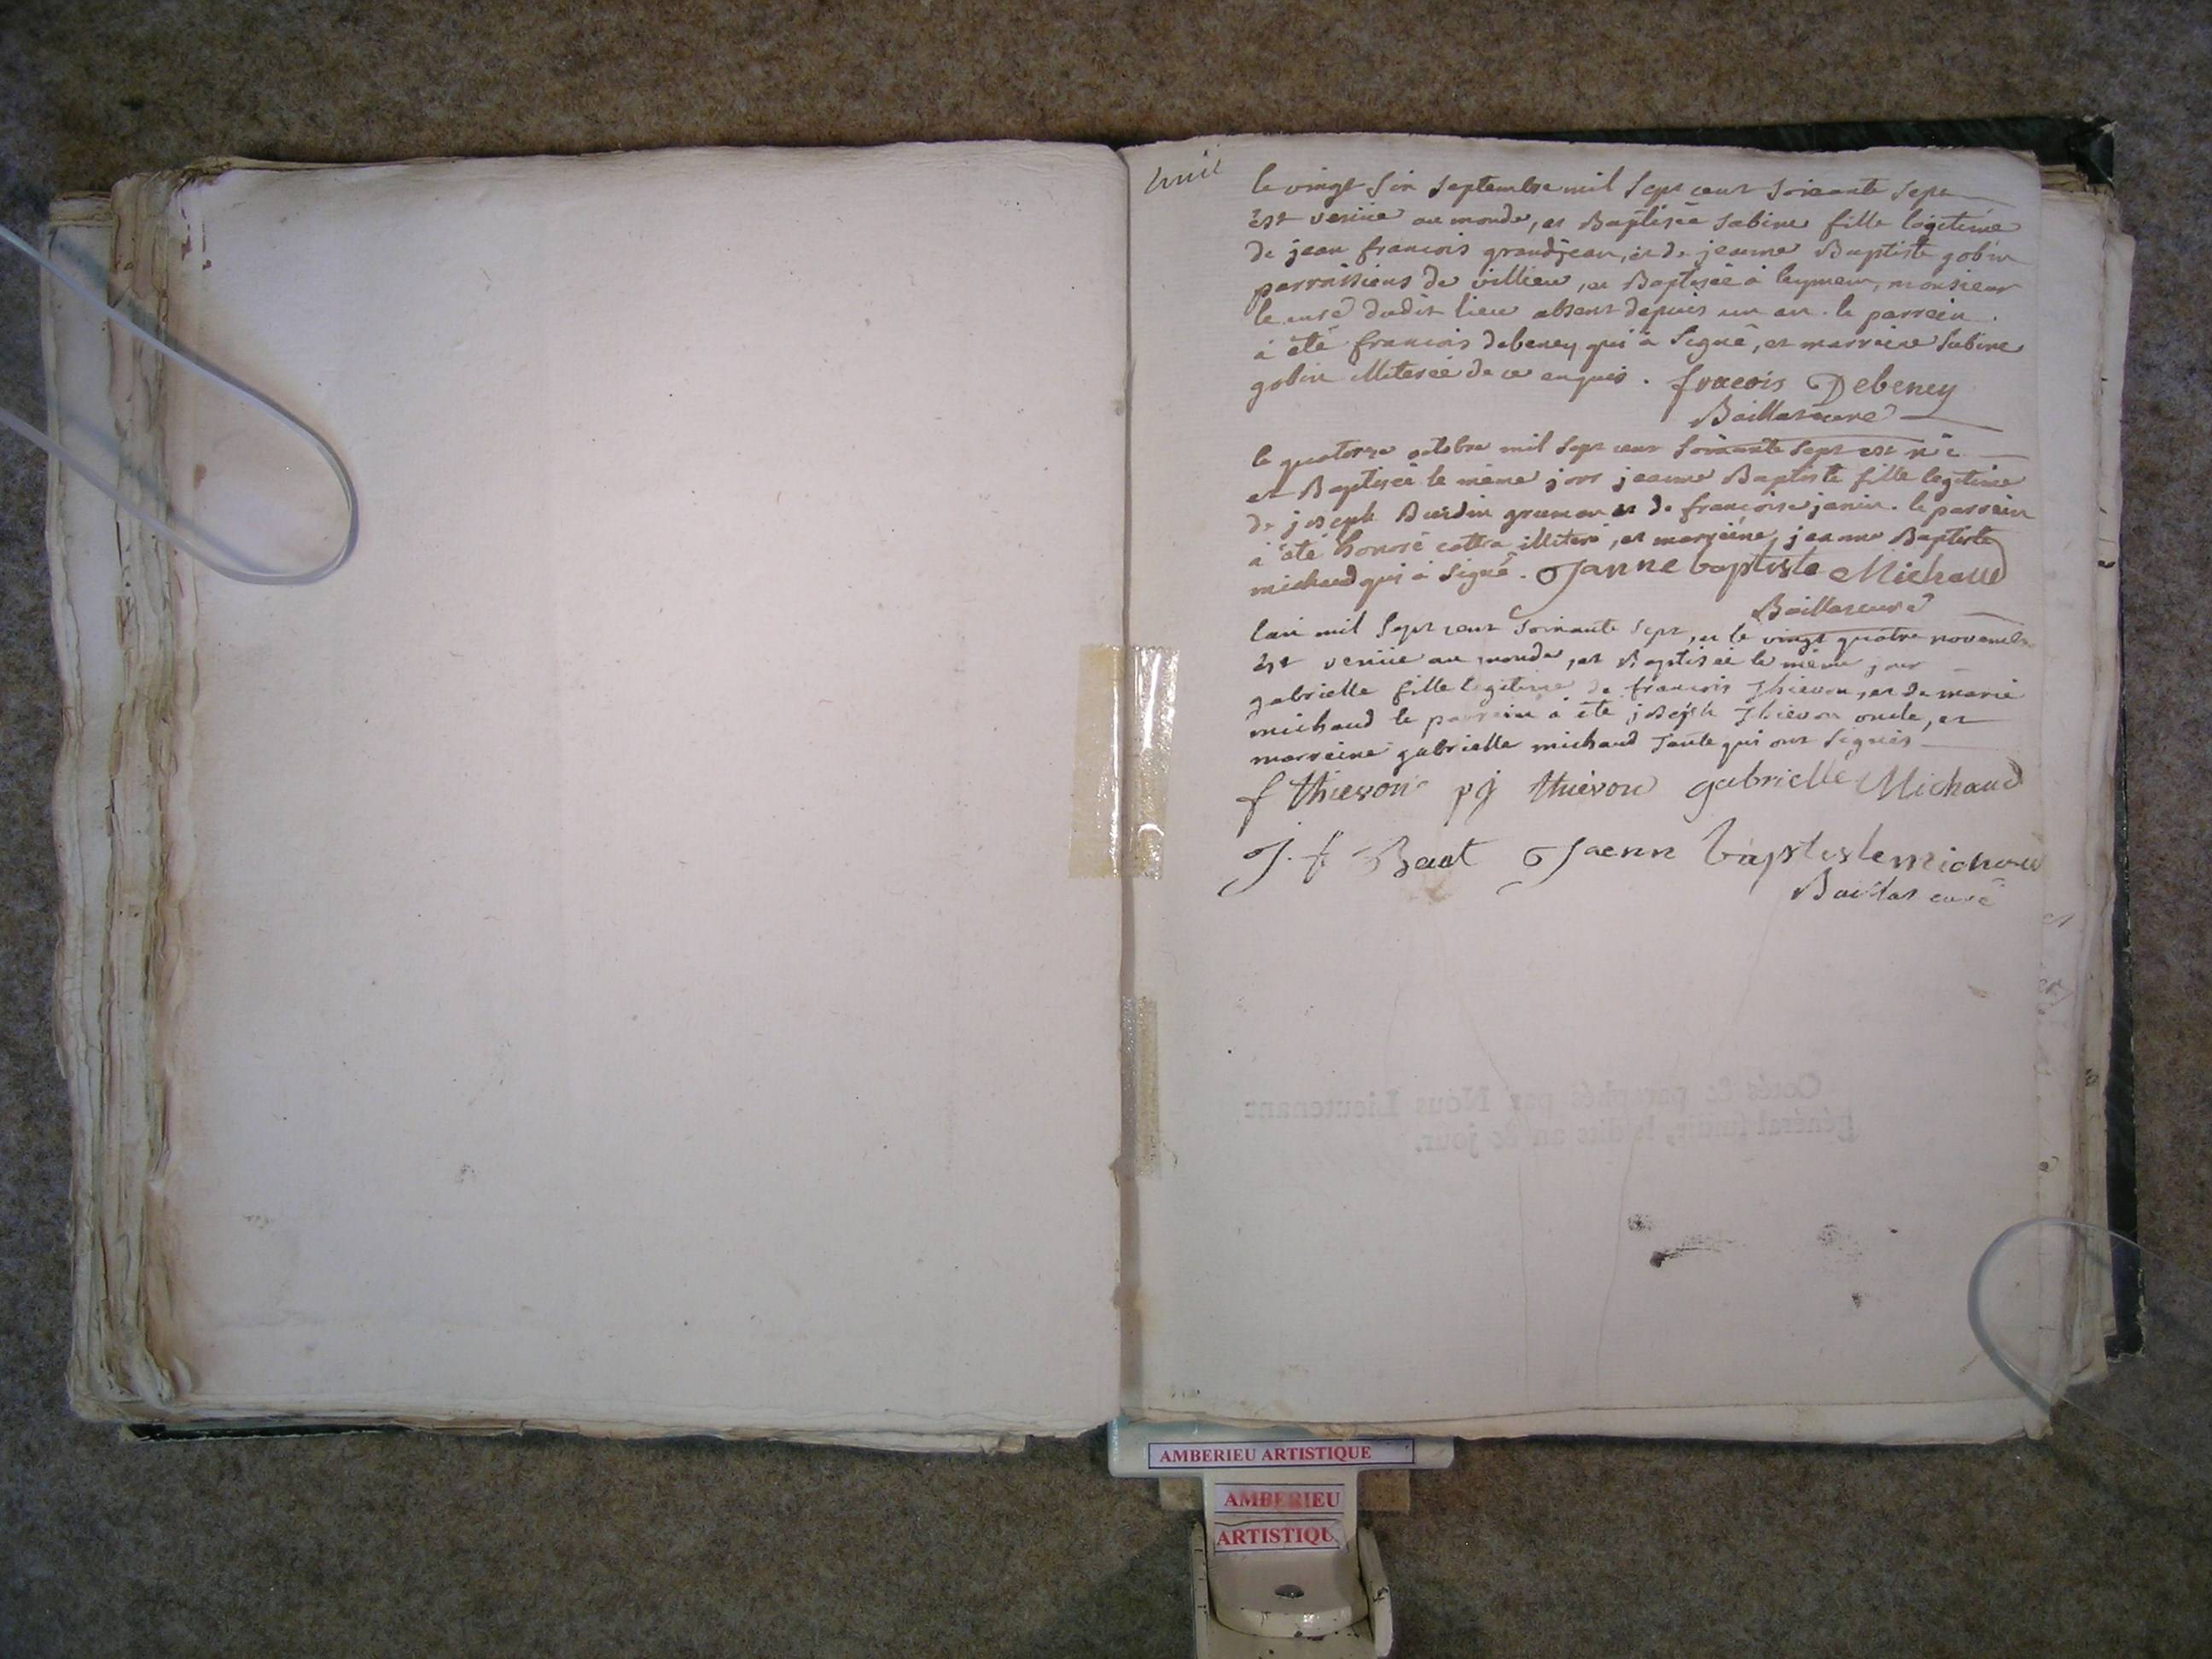 huit
le vingt six septembre mil sept cent soixante sept
est venüe au monde, et Baptisée sabine fille légitime
de jean francois grandjean, et de jeanne Baptiste gobin
parroissiens de villieu, et Baptisée à leymen, monsieur
le curé dudit lieu absent depuis un an. le parrein
à été francois debeney qui à signé, et marreine sabine
gobin illiterée de ce enquis. fracois Debeney
Baillat curé
le quatorze octobre mil sept cent soixante sept est née
et Baptisée le même jour jeanne Baptiste fille legitime
de joseph Burdin et de francoise janin. le parrein
à été honoré cottra illiteré, et marreine jeanne Baptiste
michaud qui à signé. Janne baptiste Michaud
Baillat curé
lan mil sept cent soixante sept, et le vingt quatre novembre
est venüe au monde, et Baptisée le même jour
gabrielle fille legitime de francois Thievon, et de marie
michaud le parrein à été joseph Thievon oncle, et
marreine gabrielle michaud Tante qui ont signés
f thievon pj thievon gabrielle Michaud
J. f Baat Jaenn baptiste michaud
Baillat curé
Cotés & paraphés par Nous Lieutenant
général susdit, lesdits an & jour.
AMBERIEU ARTISTIQUE
AMBERIEU
ARTISTIQU